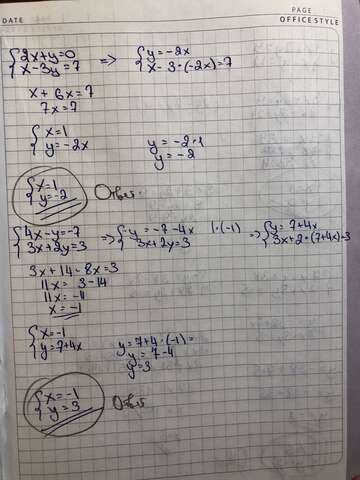 DATE PAGE
OFFICE STYLE
{2x+y=0 => {y=-2x
{x-3y=7 {x-3·(-2x)=7
x+6x=7
7x=7
{x=1 y=-2·1
{y=-2x y=-2
{x-1
{y=-2 Ответ.
{4x-y=-7 => {-y=-7-4x |·(-1) => {y=7+4x
{3x+2y=3 {3x+2y=3 {3x+2·(7+4x)=3
3x+14-8x=3
11x=3-14
11x=-11
x=-1
{x=-1 y=7+4·(-1)=
{y=7+4x y=7-4
y=3
{x=-1
{y=3 Ответ